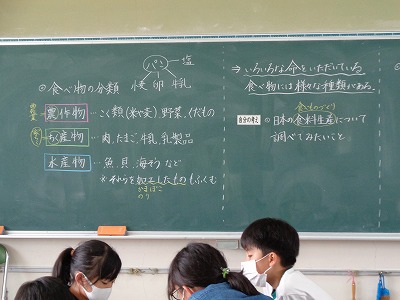 パン 塩
◎食べ物の分類 麦 卵 牛乳
農業 農作物 … こく類(米や麦)、野菜、くだもの
ちく産物 … 肉、たまご、牛乳、乳製品
水産物 … 魚、貝、海そう など
※それらを加工したものもふくむ
かまぼこ
のり
⇒いろいろな命をいただいている。
食べ物には様々な種類がある。
食べものづくり
自分の考え ◎日本の食料生産について
調べてみたいこと